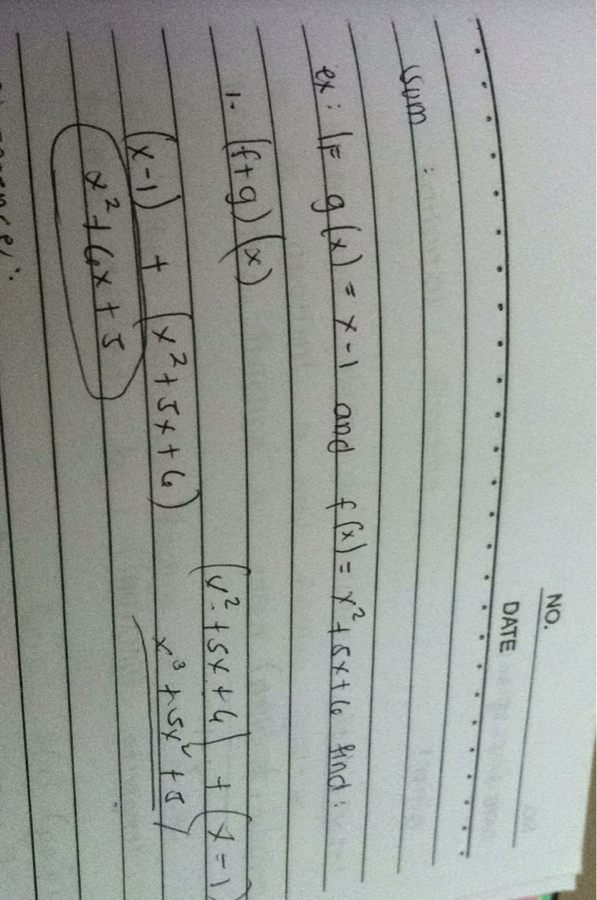 NO.
DATE
Sum :
ex: IF g(x) = x-1 and f(x) = x²+5x+6 find:
1. (f+g)(x)
(x²+5x+6) + (x-1)
(x-1) + (x²+5x+6)
x³+5x²+5
x²+6x+5